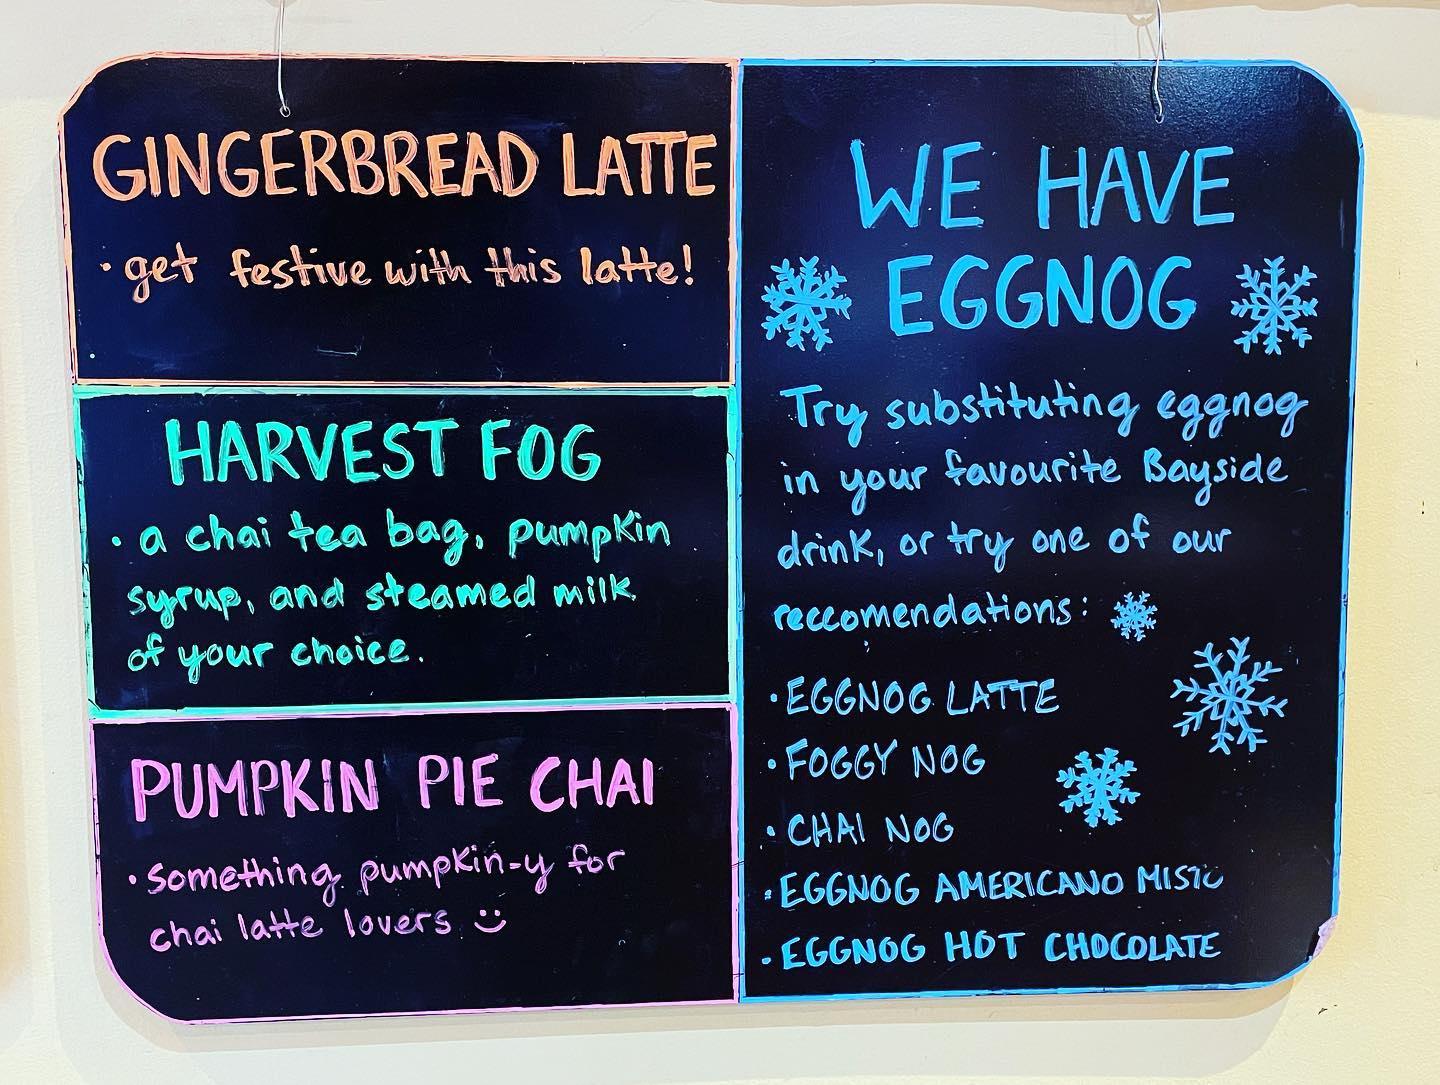 GINGERBREAD LATTE
· get festive with this latte!
HARVEST FOG
· a chai tea bag, pumpkin
syrup, and steamed milk
of your choice.
PUMPKIN PIE CHAI
· something pumpkin-y for
chai latte lovers :)
WE HAVE
EGGNOG
Try substituting eggnog
in your favourite Bayside
drink, or try one of our
reccomendations:
· EGGNOG LATTE
· FOGGY NOG
· CHAI NOG
· EGGNOG AMERICANO MISTO
· EGGNOG HOT CHOCOLATE